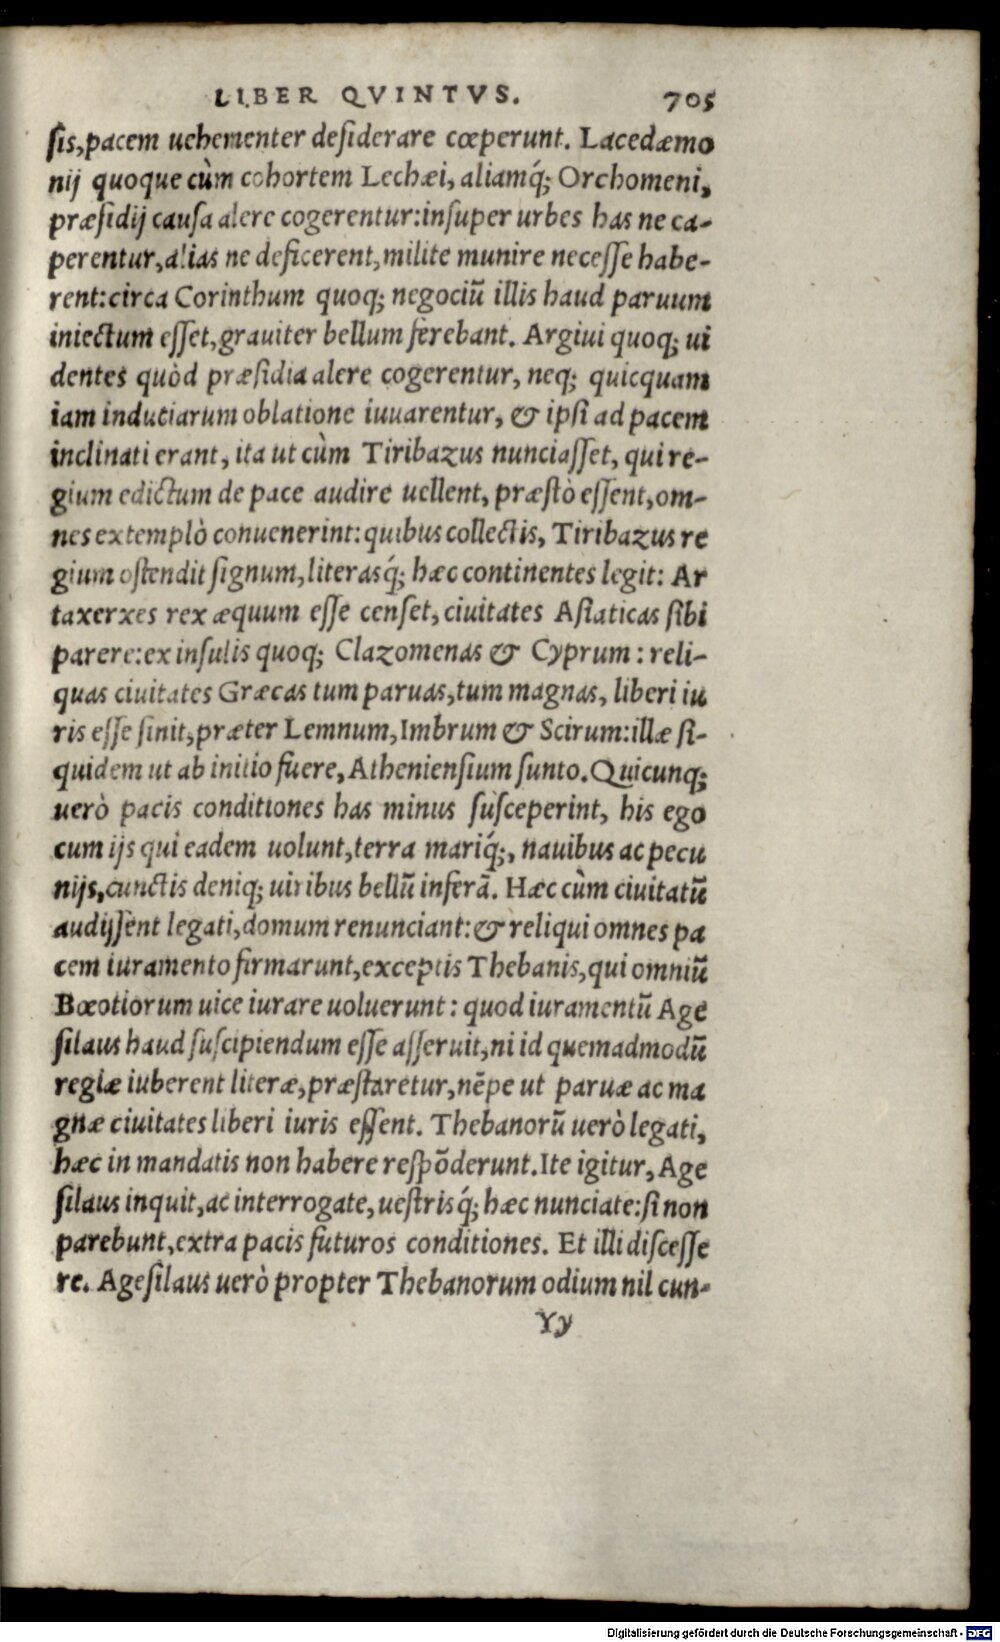 LIBER QVINTVS. 705
ſis,pacem uehementer deſiderare cœperunt. Lacedæmo
nij quoque cùm cohortem Lechæi, aliamq́; Orchomeni,
præſidij cauſa alere cogerentur:inſuper urbes has ne ca-
perentur,alias ne deficerent,milite munire neceſſe habe-
rent:circa Corinthum quoq; negociũ illis haud paruum
iniectum eſſet,grauiter bellum ferebant. Argiui quoq; ui
dentes quòd præſidia alere cogerentur, neq; quicquam
iam induciarum oblatione iuuarentur, & ipſi ad pacem
inclinati erant, ita ut cùm Tiribazus nunciaſſet, qui re-
gium edictum de pace audire uellent, præſtò eſſent,om-
nes extemplò conuenerint: quibus collectis, Tiribazus re
gium oſtendit ſignum,literasq́; hæc continentes legit: Ar
taxerxes rex æquum eſſe cenſet, ciuitates Aſiaticas ſibi
parere:ex inſulis quoq; Clazomenas & Cyprum: reli-
quas ciuitates Græcas tum paruas,tum magnas, liberi iu
ris eſſe ſinit,præter Lemnum,Imbrum & Scirum:illæ ſi-
quidem ut ab initio fuere, Athenienſium ſunto. Quicunq;
uerò pacis conditiones has minus ſuſceperint, his ego
cum ijs qui eadem uolunt,terra mariq́;, nauibus ac pecu
nijs,cunctis deniq; uiribus bellũ inferã. Hæc cùm ciuitatũ
audijſſent legati,domum renunciant:& reliqui omnes pa
cem iuramento firmarunt,exceptis Thebanis,qui omniũ
Bœotiorum uice iurare uoluerunt: quod iuramentũ Age
ſilaus haud ſuſcipiendum eſſe aſſeruit,ni id quemadmodũ
regiæ iuberent literæ,præſtaretur,nẽpe ut paruæ ac ma
gnæ ciuitates liberi iuris eſſent. Thebanorũ uerò legati,
hæc in mandatis non habere reſpõderunt.Ite igitur, Age
ſilaus inquit,ac interrogate,ueſtrisq́; hæc nunciate:ſi non
parebunt,extra pacis futuros conditiones. Et illi diſceſſe
re. Ageſilaus uerò propter Thebanorum odium nil cun-
Yy
Digitalisierung gefördert durch die Deutsche Forschungsgemeinschaft - DFG